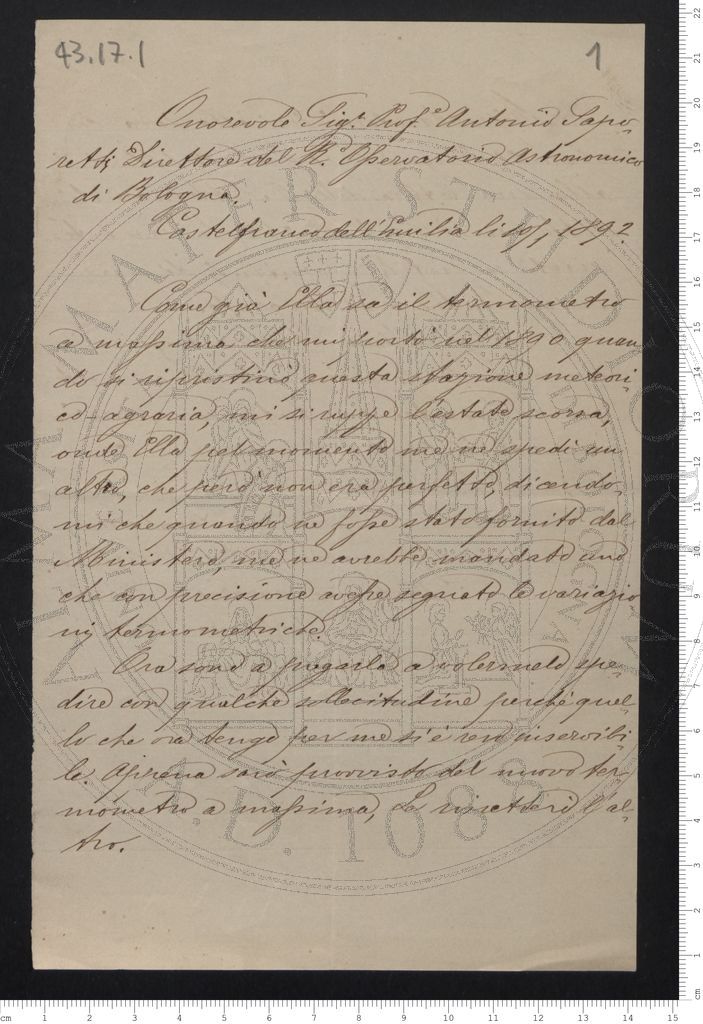 43.17.1
1
Onorevole Sig.r Prof.e Antonio Sapo-
retti Direttore del R.o Osservatorio Astronomico
di Bologna.
Castelfranco dell'Emilia li 10/1 1892
Come già Ella sa il termometro
a massima che mi portò nel 1890 quan-
do si ripristinò questa stazione meteori-
co-agraria, mi si ruppe l'estate scorsa,
onde Ella pel momento me ne spedì un
altro, che però non era perfetto, dicendo-
mi che quando ne fosse stato fornito dal
Ministero, me ne avrebbe mandato uno
che con precisione avesse segnato le variazio-
ni termometriche.
Ora sono a pregarla a volermelo spe-
dire con qualche sollecitudine perché quel-
lo che ora tengo per me si è reso inservibi-
le. Appena sarò provvisto del nuovo ter-
mometro a massima, Le rimetterò l'al-
tro.
ALMA MATER STUDIORUM
A.D. 1088